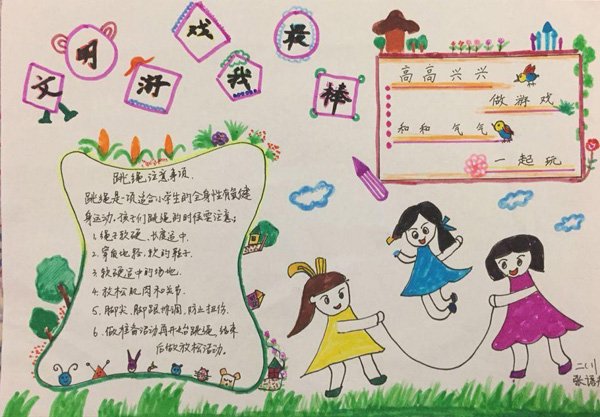 文明游戏我最棒
高高兴兴
做游戏
和和气气
一起玩
跳绳注意事项
跳绳是一项适合小学生的全身性有氧健
身运动。孩子们跳绳的时候要注意：
1. 绳子软硬、长度适中.
2. 穿质地轻、软的鞋子.
3. 软硬适中的场地.
4. 放松肌肉和关节.
5. 脚尖、脚跟协调，防止扭伤.
6. 做准备活动再开始跳绳，结束
后做放松活动。
二(1)
张语